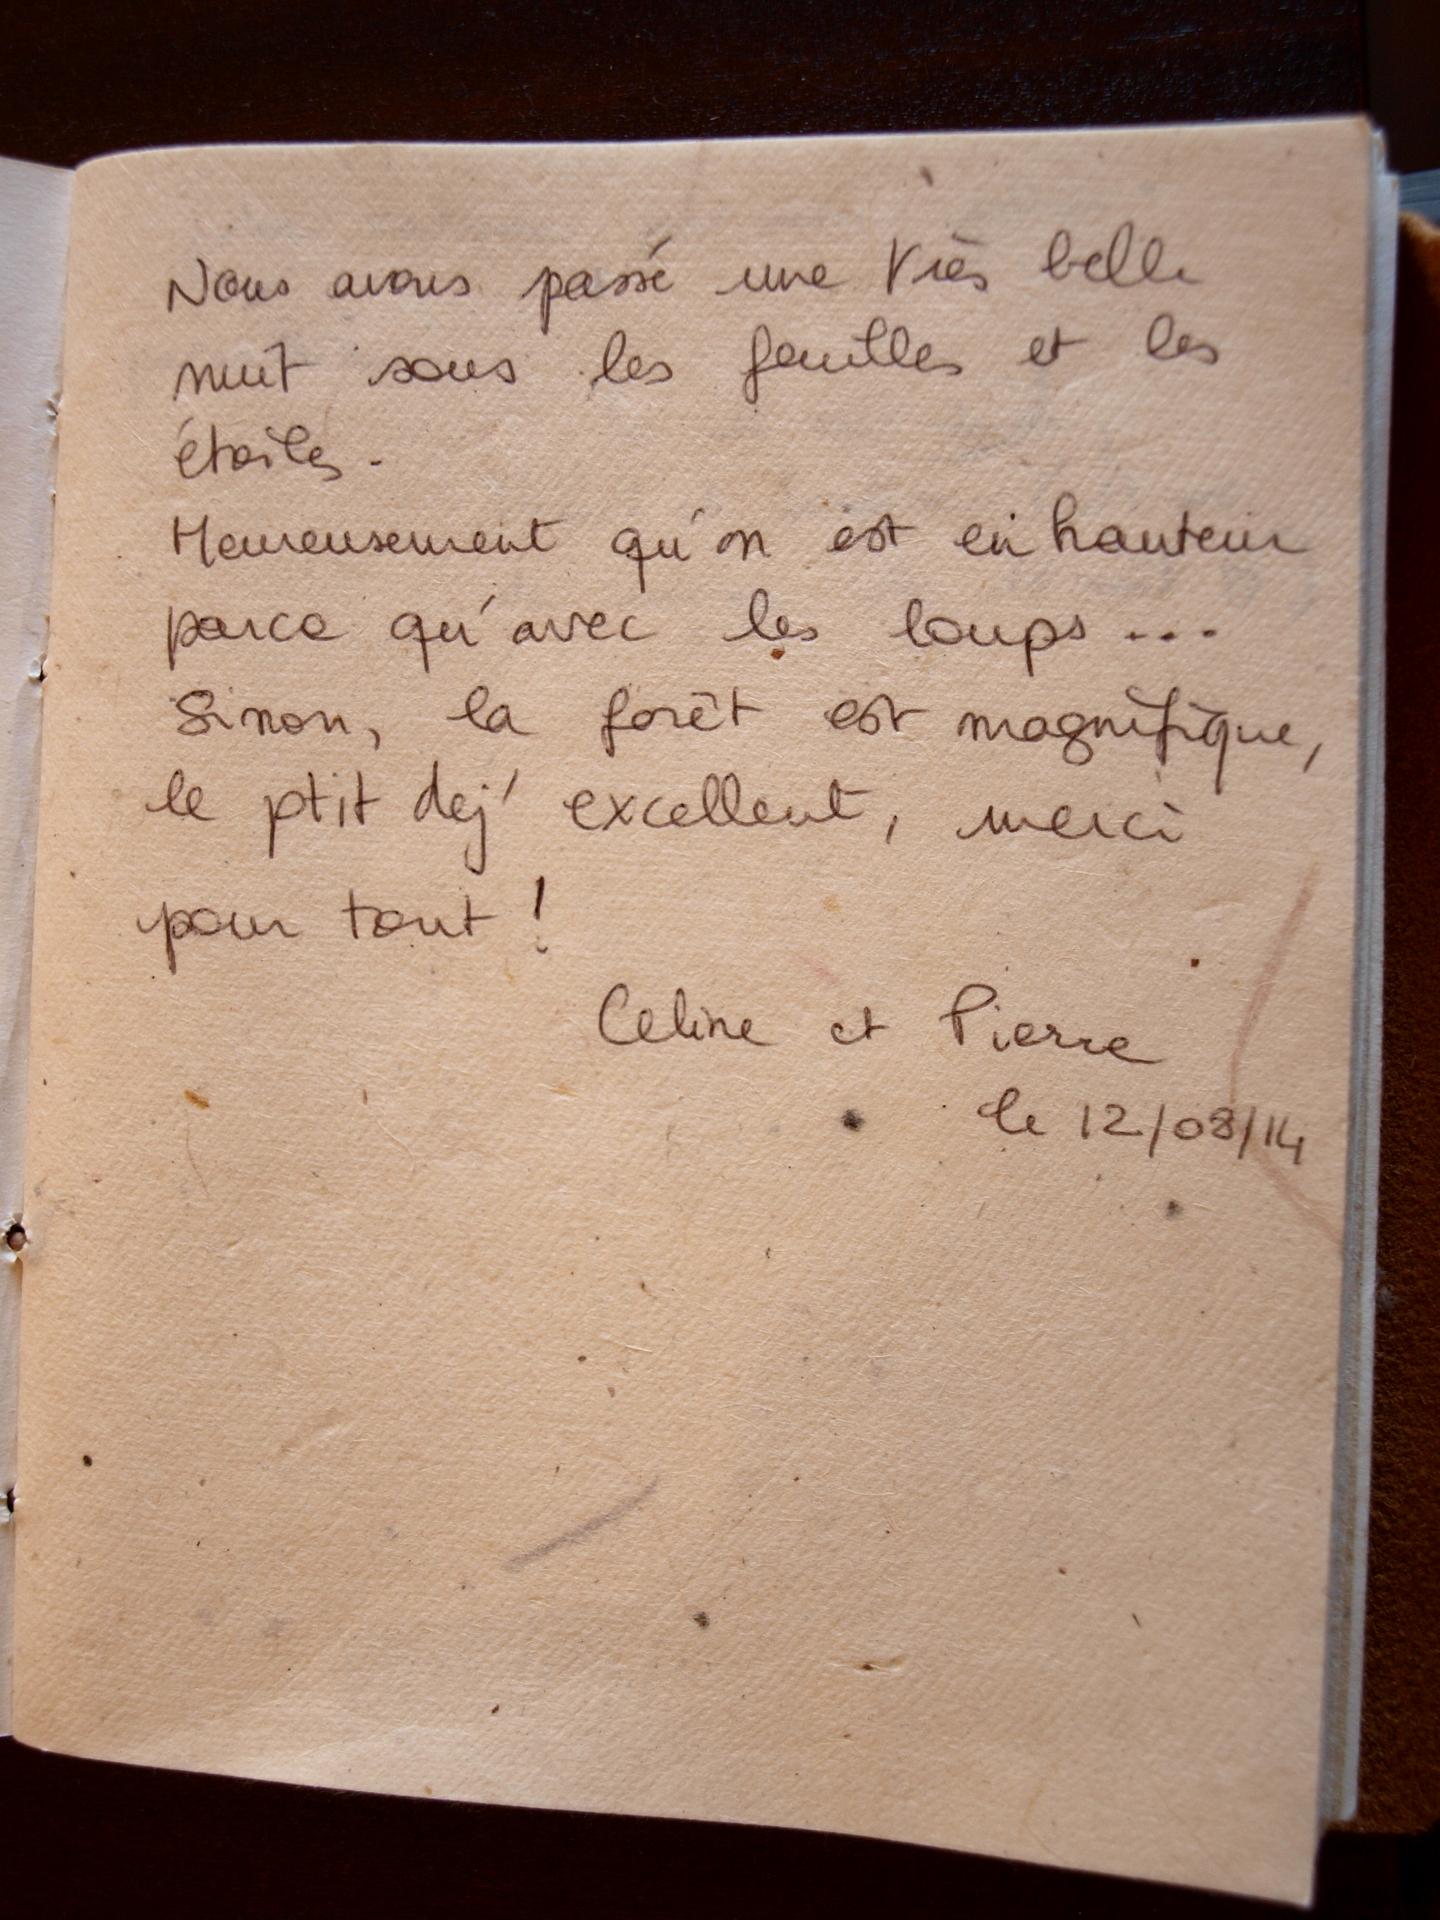 Nous avons passé une très belle
nuit sous les feuilles et les
étoiles.
Heureusement qu'on est en hauteur
parce qu'avec les loups...
Sinon, la forêt est magnifique,
le ptit dej' excellent, merci
pour tout !
Celine et Pierre
le 12/08/14